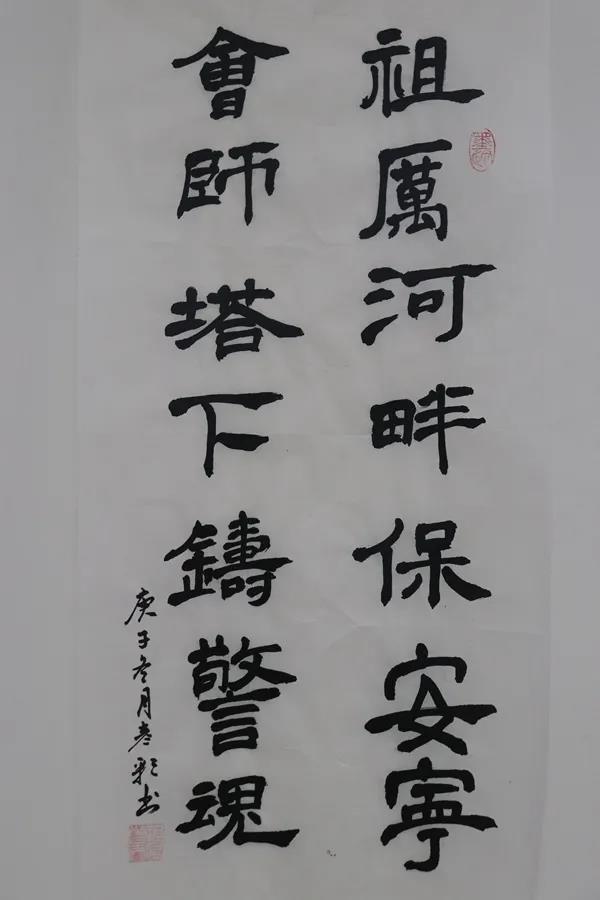 祖厲河畔保安寧
會師塔下鑄警魂
庚子冬月彥彰书